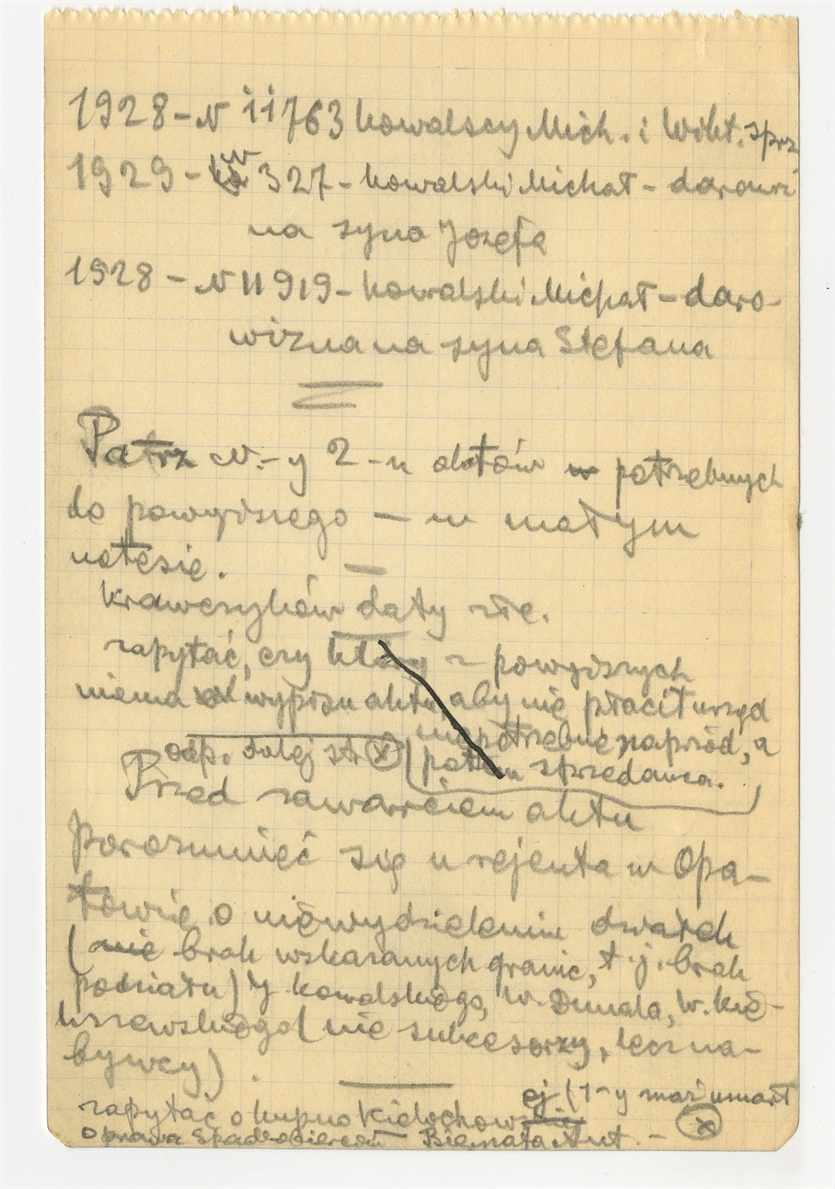 1928 - N 11763 Kowalscy Mich. i Wikt. sprz
1929 - N 327 - Kowalski Michał - darowi
na syna Józefa
1928 - N 11919 - Kowalski Michał - daro-
wizna na syna Stefana
Patrz N-y 2-u aktów potrzebnych
do powyższego — w małym
notesie. —
Krawczyków daty złe.
zapytać, czy który z powyższych
niema wypisu aktu, aby nie płacił urzęd
niepotrzebnie naprzód, a
odp. dalej str (x) potem sprzedawca.
Przed zawarciem aktu
porozumieć się u rejenta w Opa-
towie o niewydzieleniu działek
(nie brak wskazanych granic, t.j. brak
podziału) J Kowalskiego, W. Dunala, W. Kie-
liszewskiego (nie sukcesorzy, lecz na-
bywcy).
zapytać o kupno Kielochow ej (1-y mąż umarł
sprawa spadkobierców Bienata Ant. - (x)